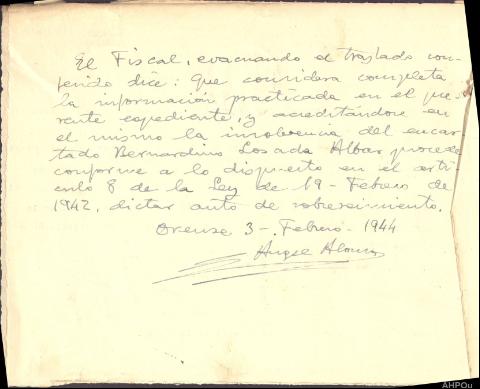 El Fiscal, evacuando el traslado con-
ferido dice: que considera completa
la información practicada en el pre-
sente expediente, y acreditándose en
el mismo la insolvencia del encar-
tado Bernardino Losada Albar procede
conforme a lo dispuesto en el artí-
culo 8 de la Ley de 19 - Febrero de
1942, dictar auto de sobreseimiento.
Orense 3 - Febrero - 1944
Angel Alonso
AHPOu